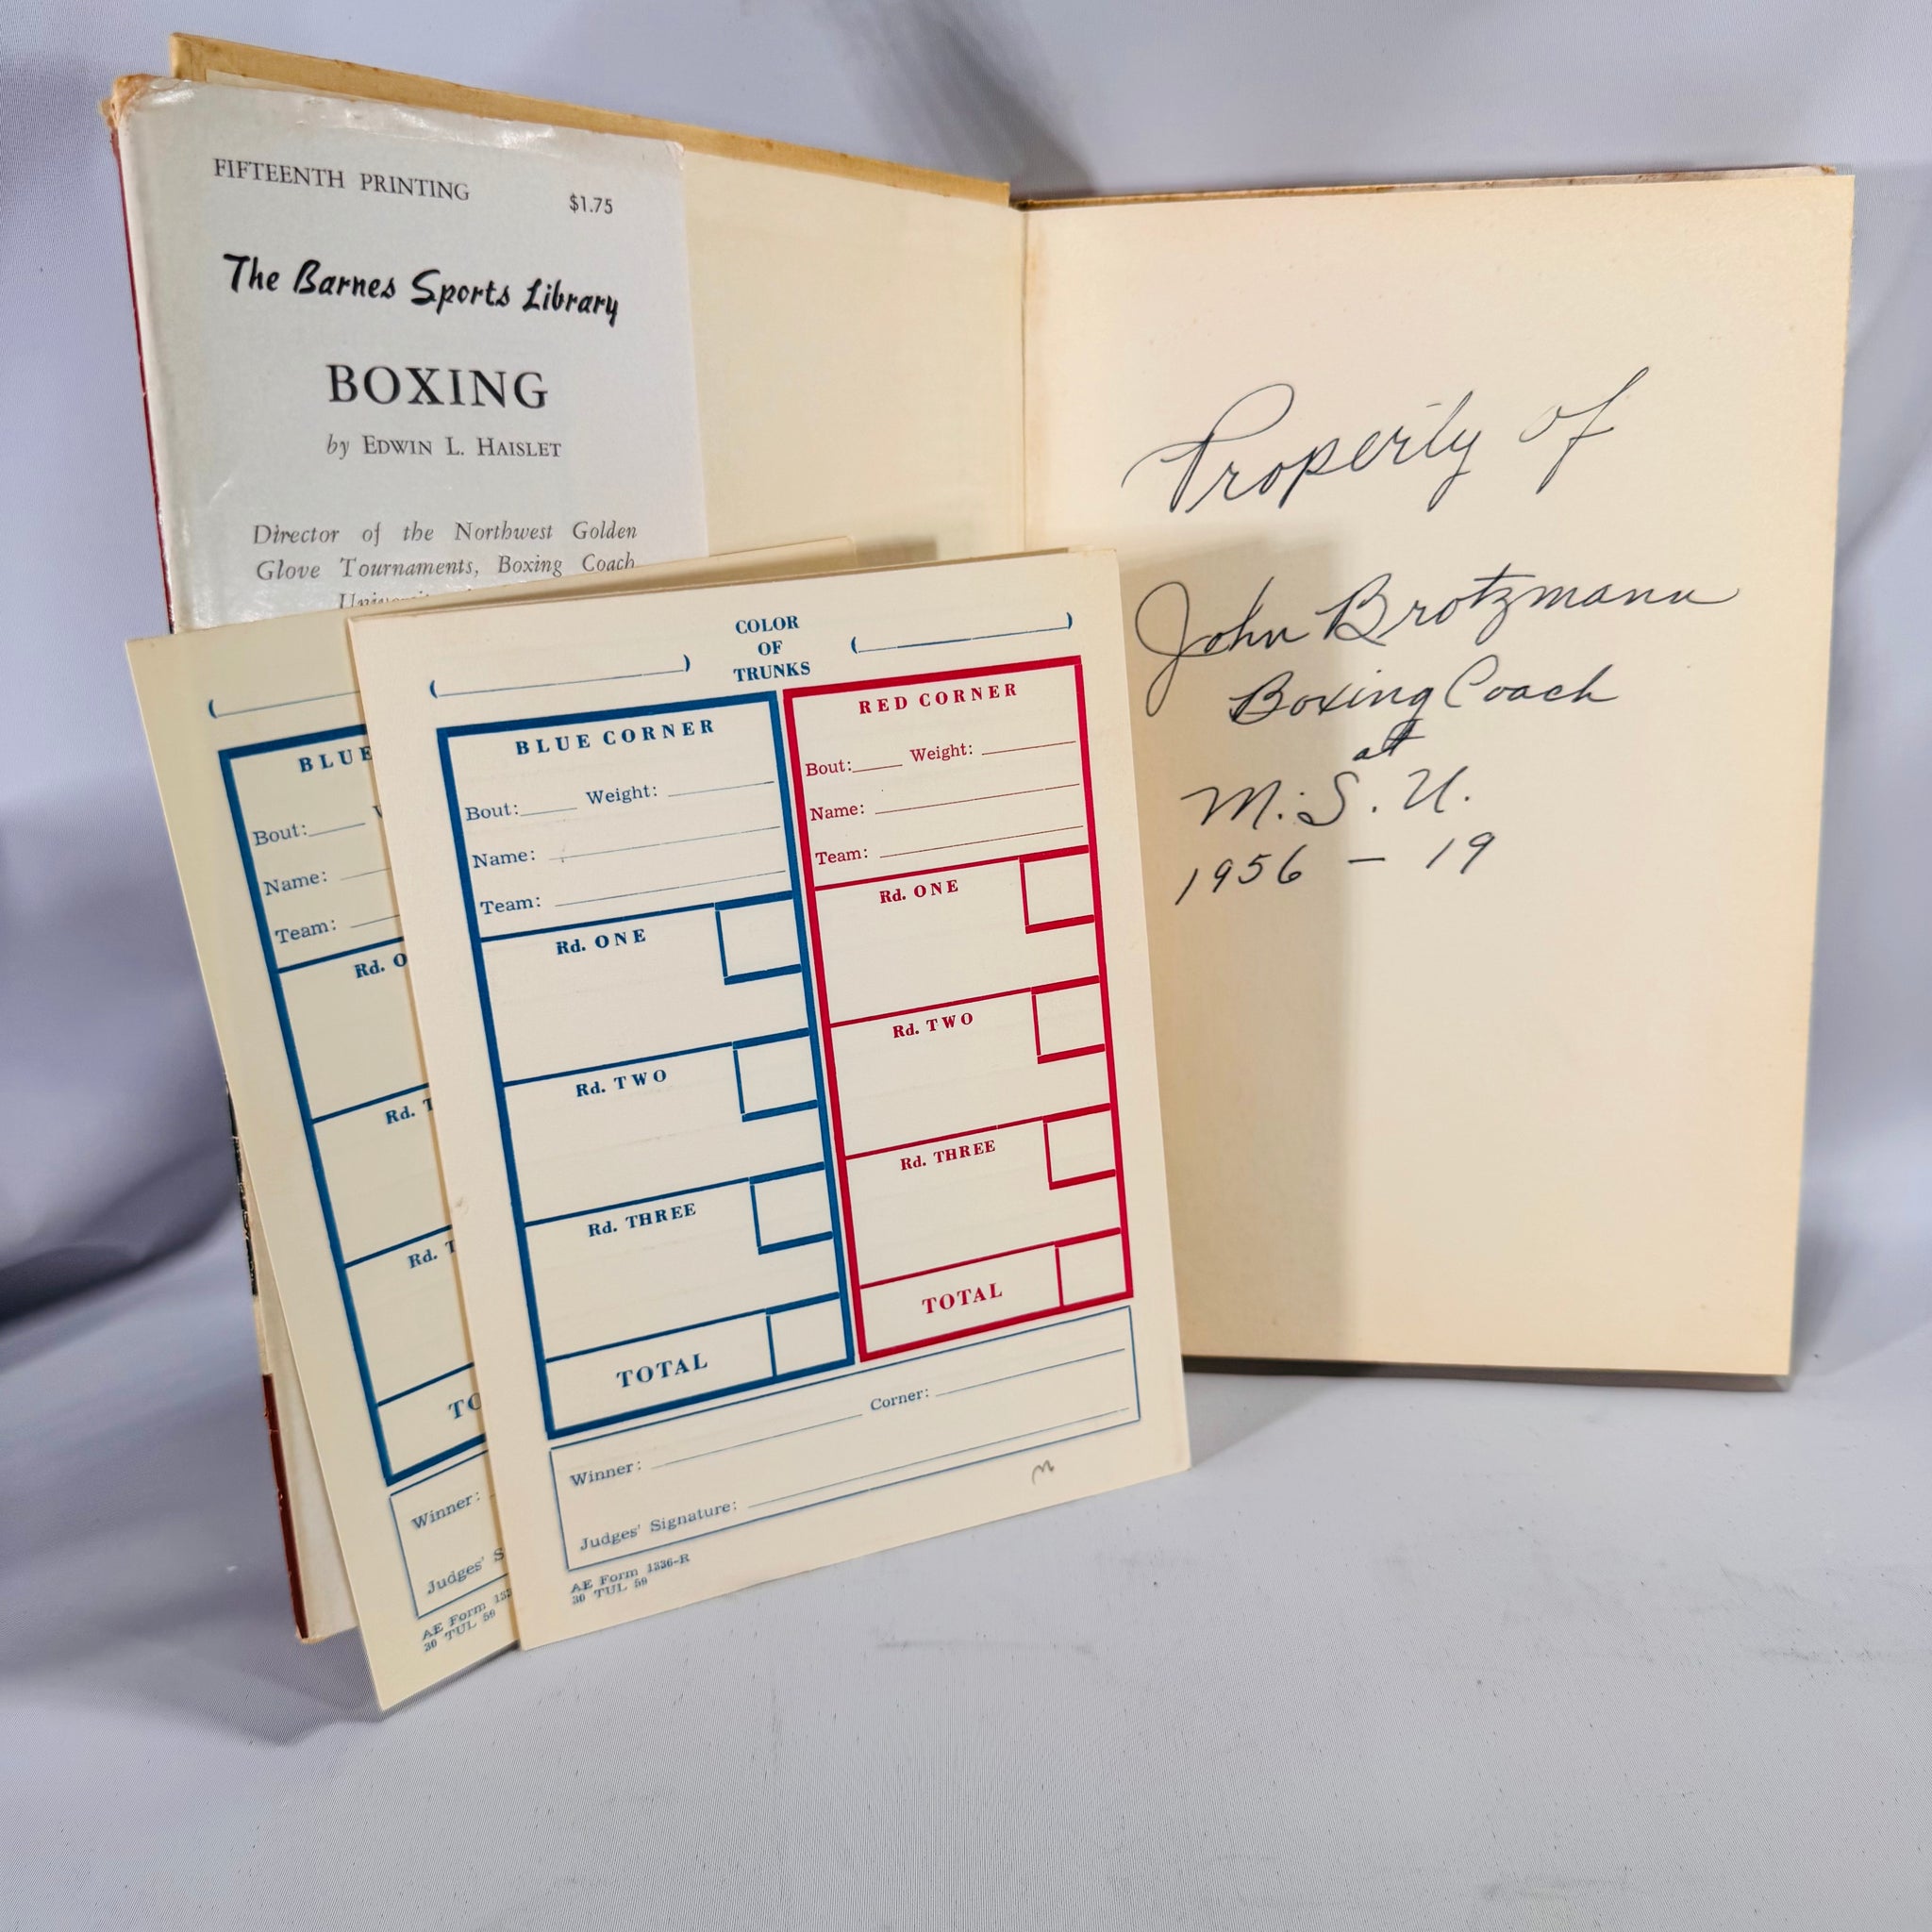 FIFTEENTH PRINTING
$1.75
The Barnes Sports Library
BOXING
by EDWIN L. HAISLET
Director of the Northwest Golden
Glove Tournaments, Boxing Coach
Property of
John Brotzmann
Boxing Coach
at
M.S.U.
1956 - 19
COLOR
OF
TRUNKS
( ) ( )
BLUE CORNER
Bout: Weight:
Name:
Team:
Rd. ONE
Rd. TWO
Rd. THREE
TOTAL
RED CORNER
Bout: Weight:
Name:
Team:
Rd. ONE
Rd. TWO
Rd. THREE
TOTAL
Winner: Corner:
Judges' Signature:
AE Form 1336-R
30 TUL 59
(
BLUE
Bout:
Name:
Team:
Rd.
Rd.
Rd.
Winner:
Judges'
AE Form
30 TUL 59